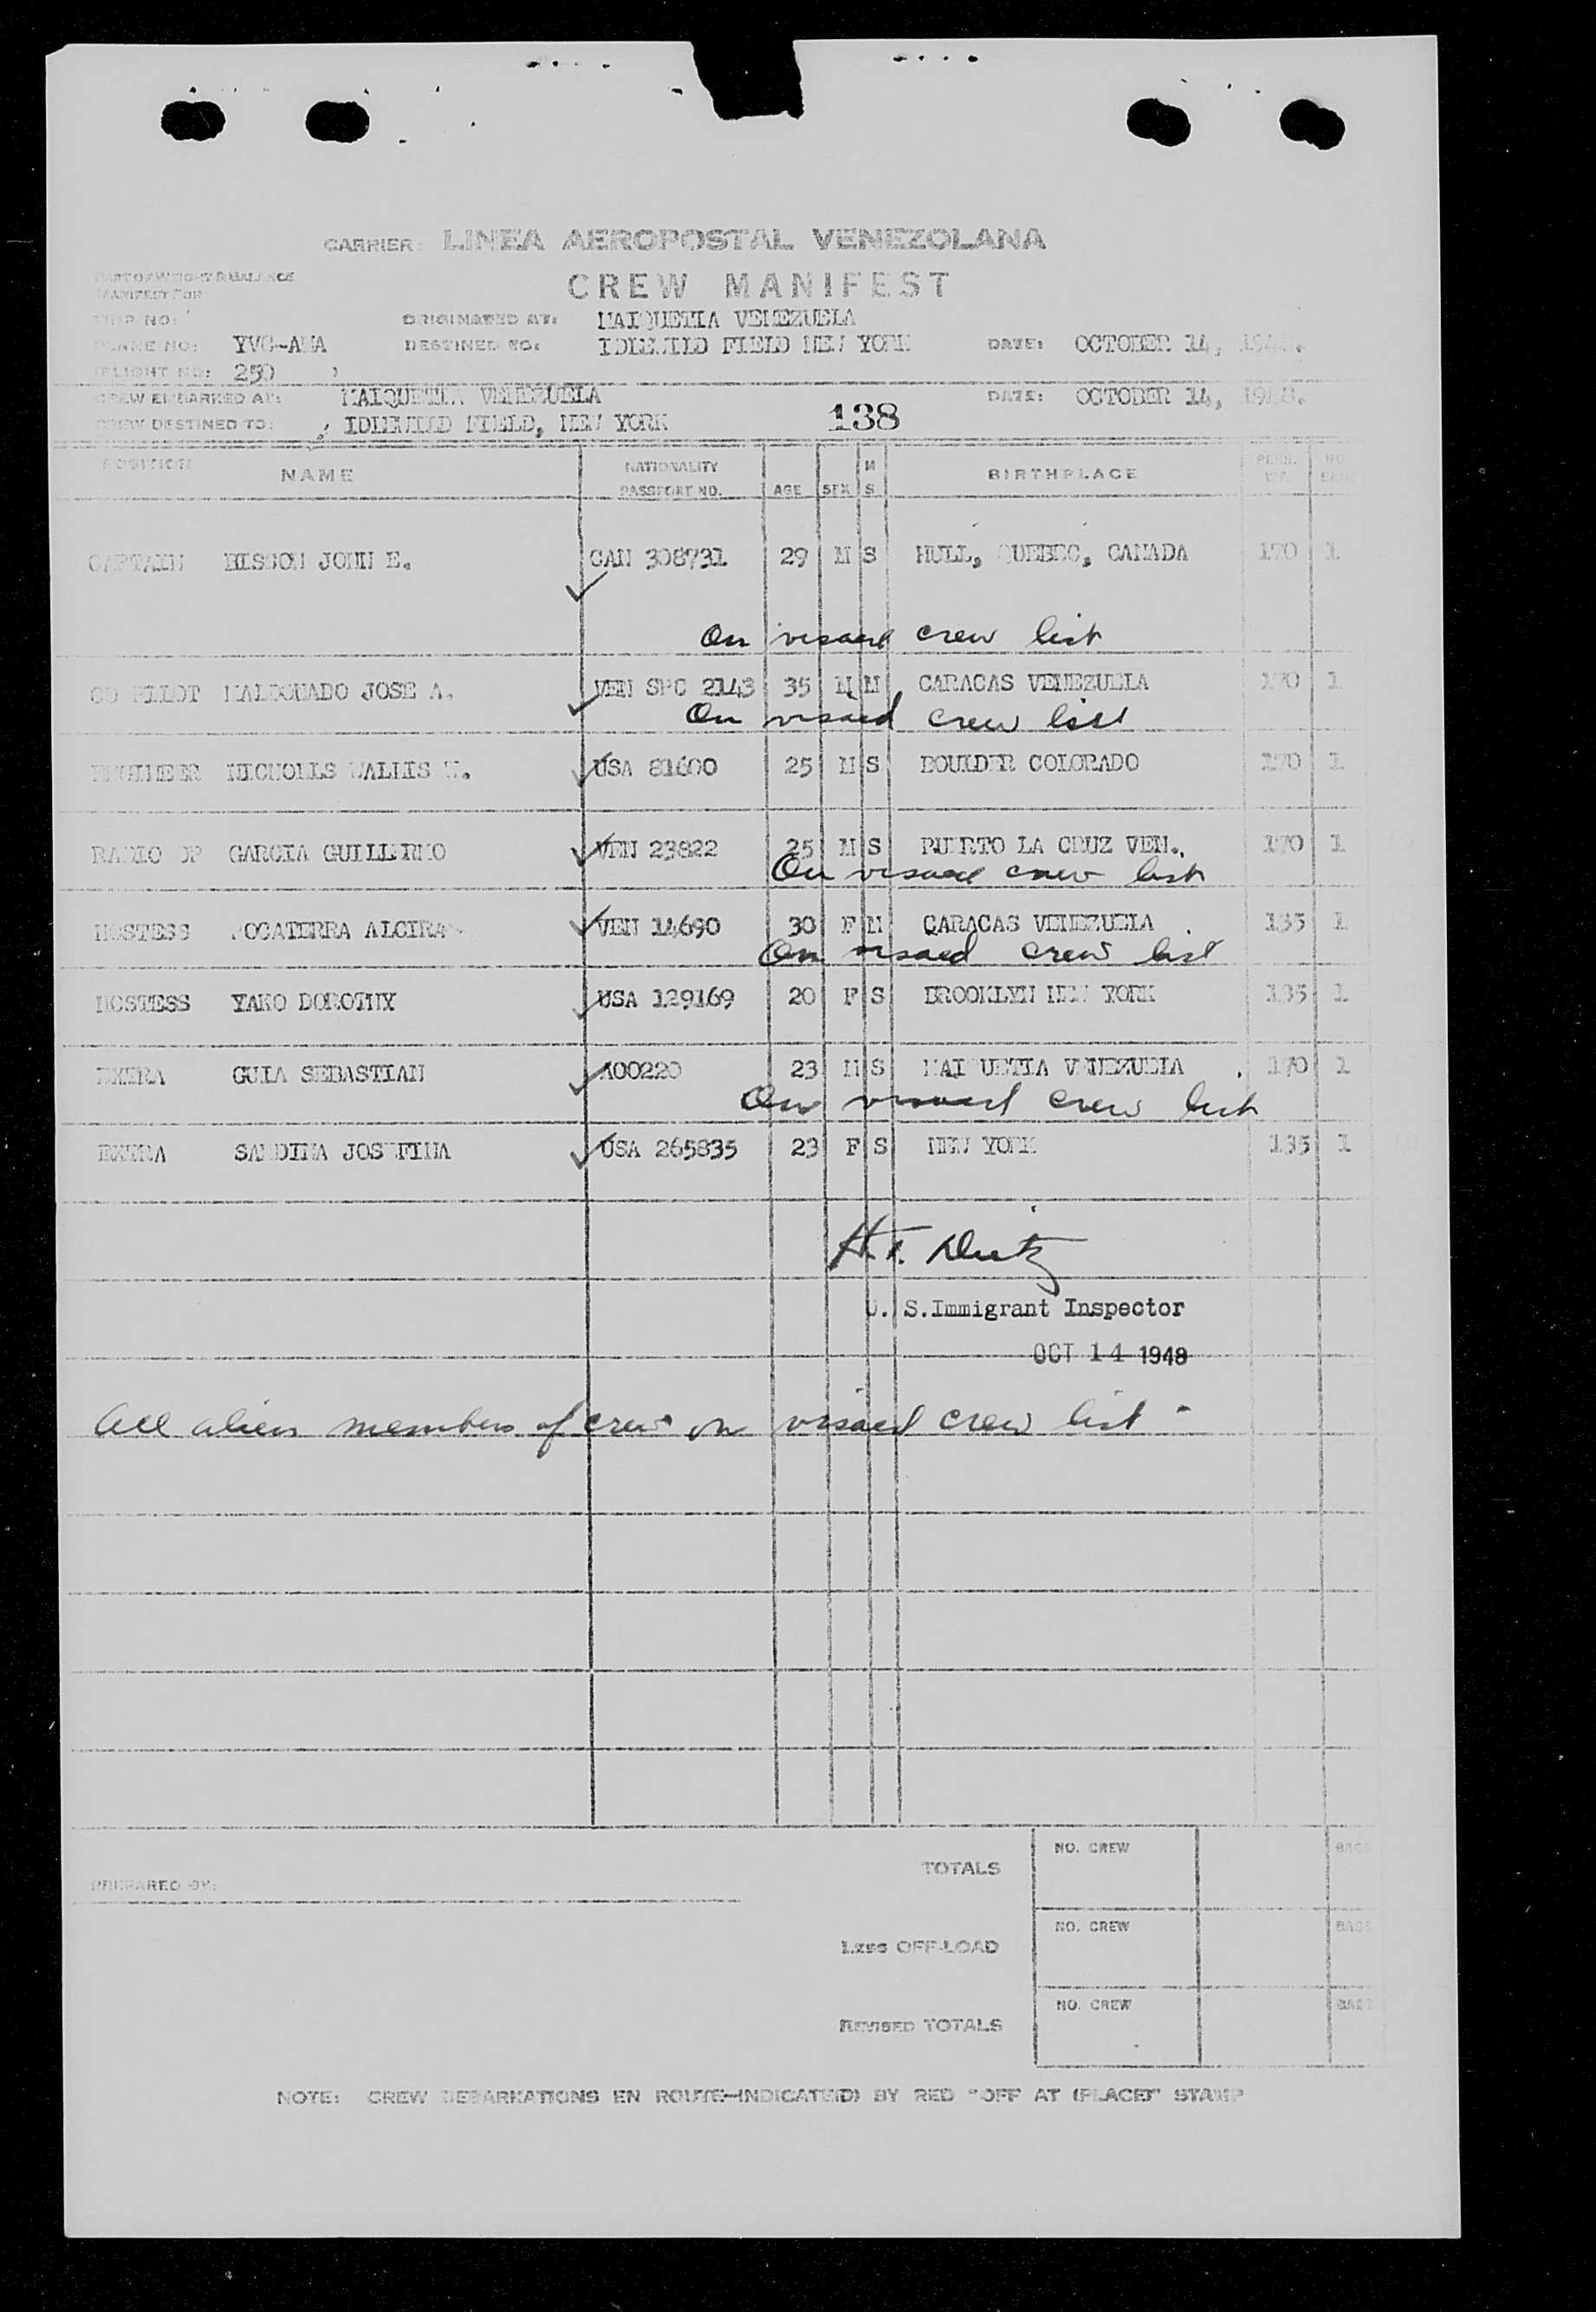 CARRIER: LINEA AEROPOSTAL VENEZOLANA
PART OF WEIGHT & BALANCE
MANIFEST FOR
CREW MANIFEST
TRIP NO: ORIGINATED AT: MAIQUETIA VENEZUELA
PLANE NO: YVC-AMA DESTINED TO: IDLEWILD FIELD NEW YORK DATE: OCTOBER 14, 1948.
FLIGHT NO: 250
CREW EMBARKED AT: MAIQUETIA VENEZUELA DATE: OCTOBER 14, 1948.
CREW DESTINED TO: IDLEWILD FIELD, NEW YORK 138
POSITION NAME NATIONALITY PASSPORT NO. AGE SEX M S BIRTHPLACE PERS. WT. NO
CAPTAIN BISSON JOHN E. CAN 308731 29 M S HULL, QUEBEC, CANADA 170 1
On visaed crew list
CO PILOT MALDONADO JOSE A. VEN SPC 2143 35 M M CARACAS VENEZUELA 170 1
On visaed crew list
ENGINEER NICHOLLS WALLIS W. USA 81600 25 M S BOULDER COLORADO 170 1
RADIO OP GARCIA GUILLERMO VEN 23822 25 M S PUERTO LA CRUZ VEN. 170 1
On visaed crew list
HOSTESS POCATERRA ALCIRA VEN 14690 30 F M CARACAS VENEZUELA 135 1
On visaed crew list
HOSTESS YAKO DOROTHY USA 129169 20 F S BROOKLYN NEW YORK 135 1
EXTRA GUIA SEBASTIAN A00220 23 M S MAIQUETIA VENEZUELA 170 1
On visaed crew list
EXTRA SANDINA JOSEFINA USA 265835 23 F S NEW YORK 135 1
H.F. Dietz
U. S. Immigrant Inspector
OCT 14 1948
All alien members of crew on visaed crew list -
TOTALS NO. CREW BAGS
PREPARED BY:
LESS OFF-LOAD NO. CREW BAGS
REVISED TOTALS NO. CREW BAGS
NOTE: CREW DEBARKATIONS EN ROUTE—INDICATE(D) BY RED "OFF AT (PLACE)" STAMP